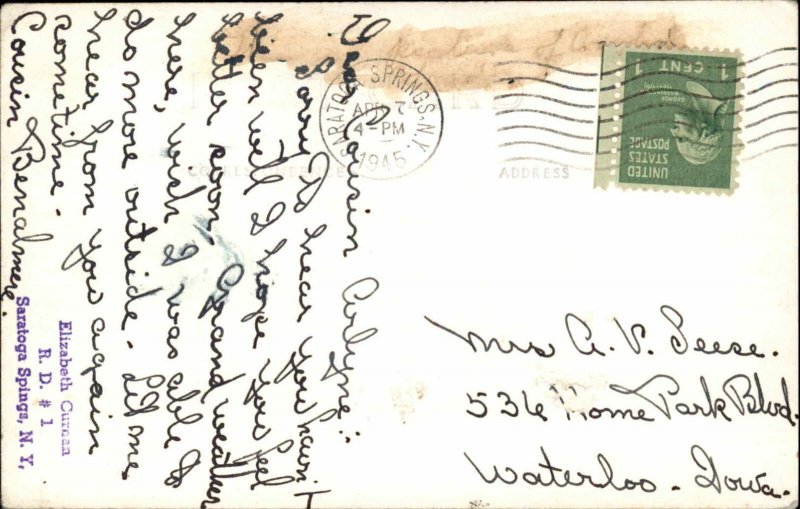 Dear Cousin Arlyne:
Sorry to hear you havn't
been well I hope you feel
better soon. Grand weather
here, wish I was able to
do more outside. Let me
hear from you again
sometime.
Cousin
Elizabeth Curnan
R. D. # 1
Saratoga Spings, N. Y,
SARATOGA SPRINGS, N.Y.
APR 7
4-PM
1945
CORRESPONDENCE
ADDRESS
1 CENT 1
UNITED
STATES
POSTAGE
Mrs A. V. Seese.
536 Home Park Blvd.
Waterloo. Iowa.